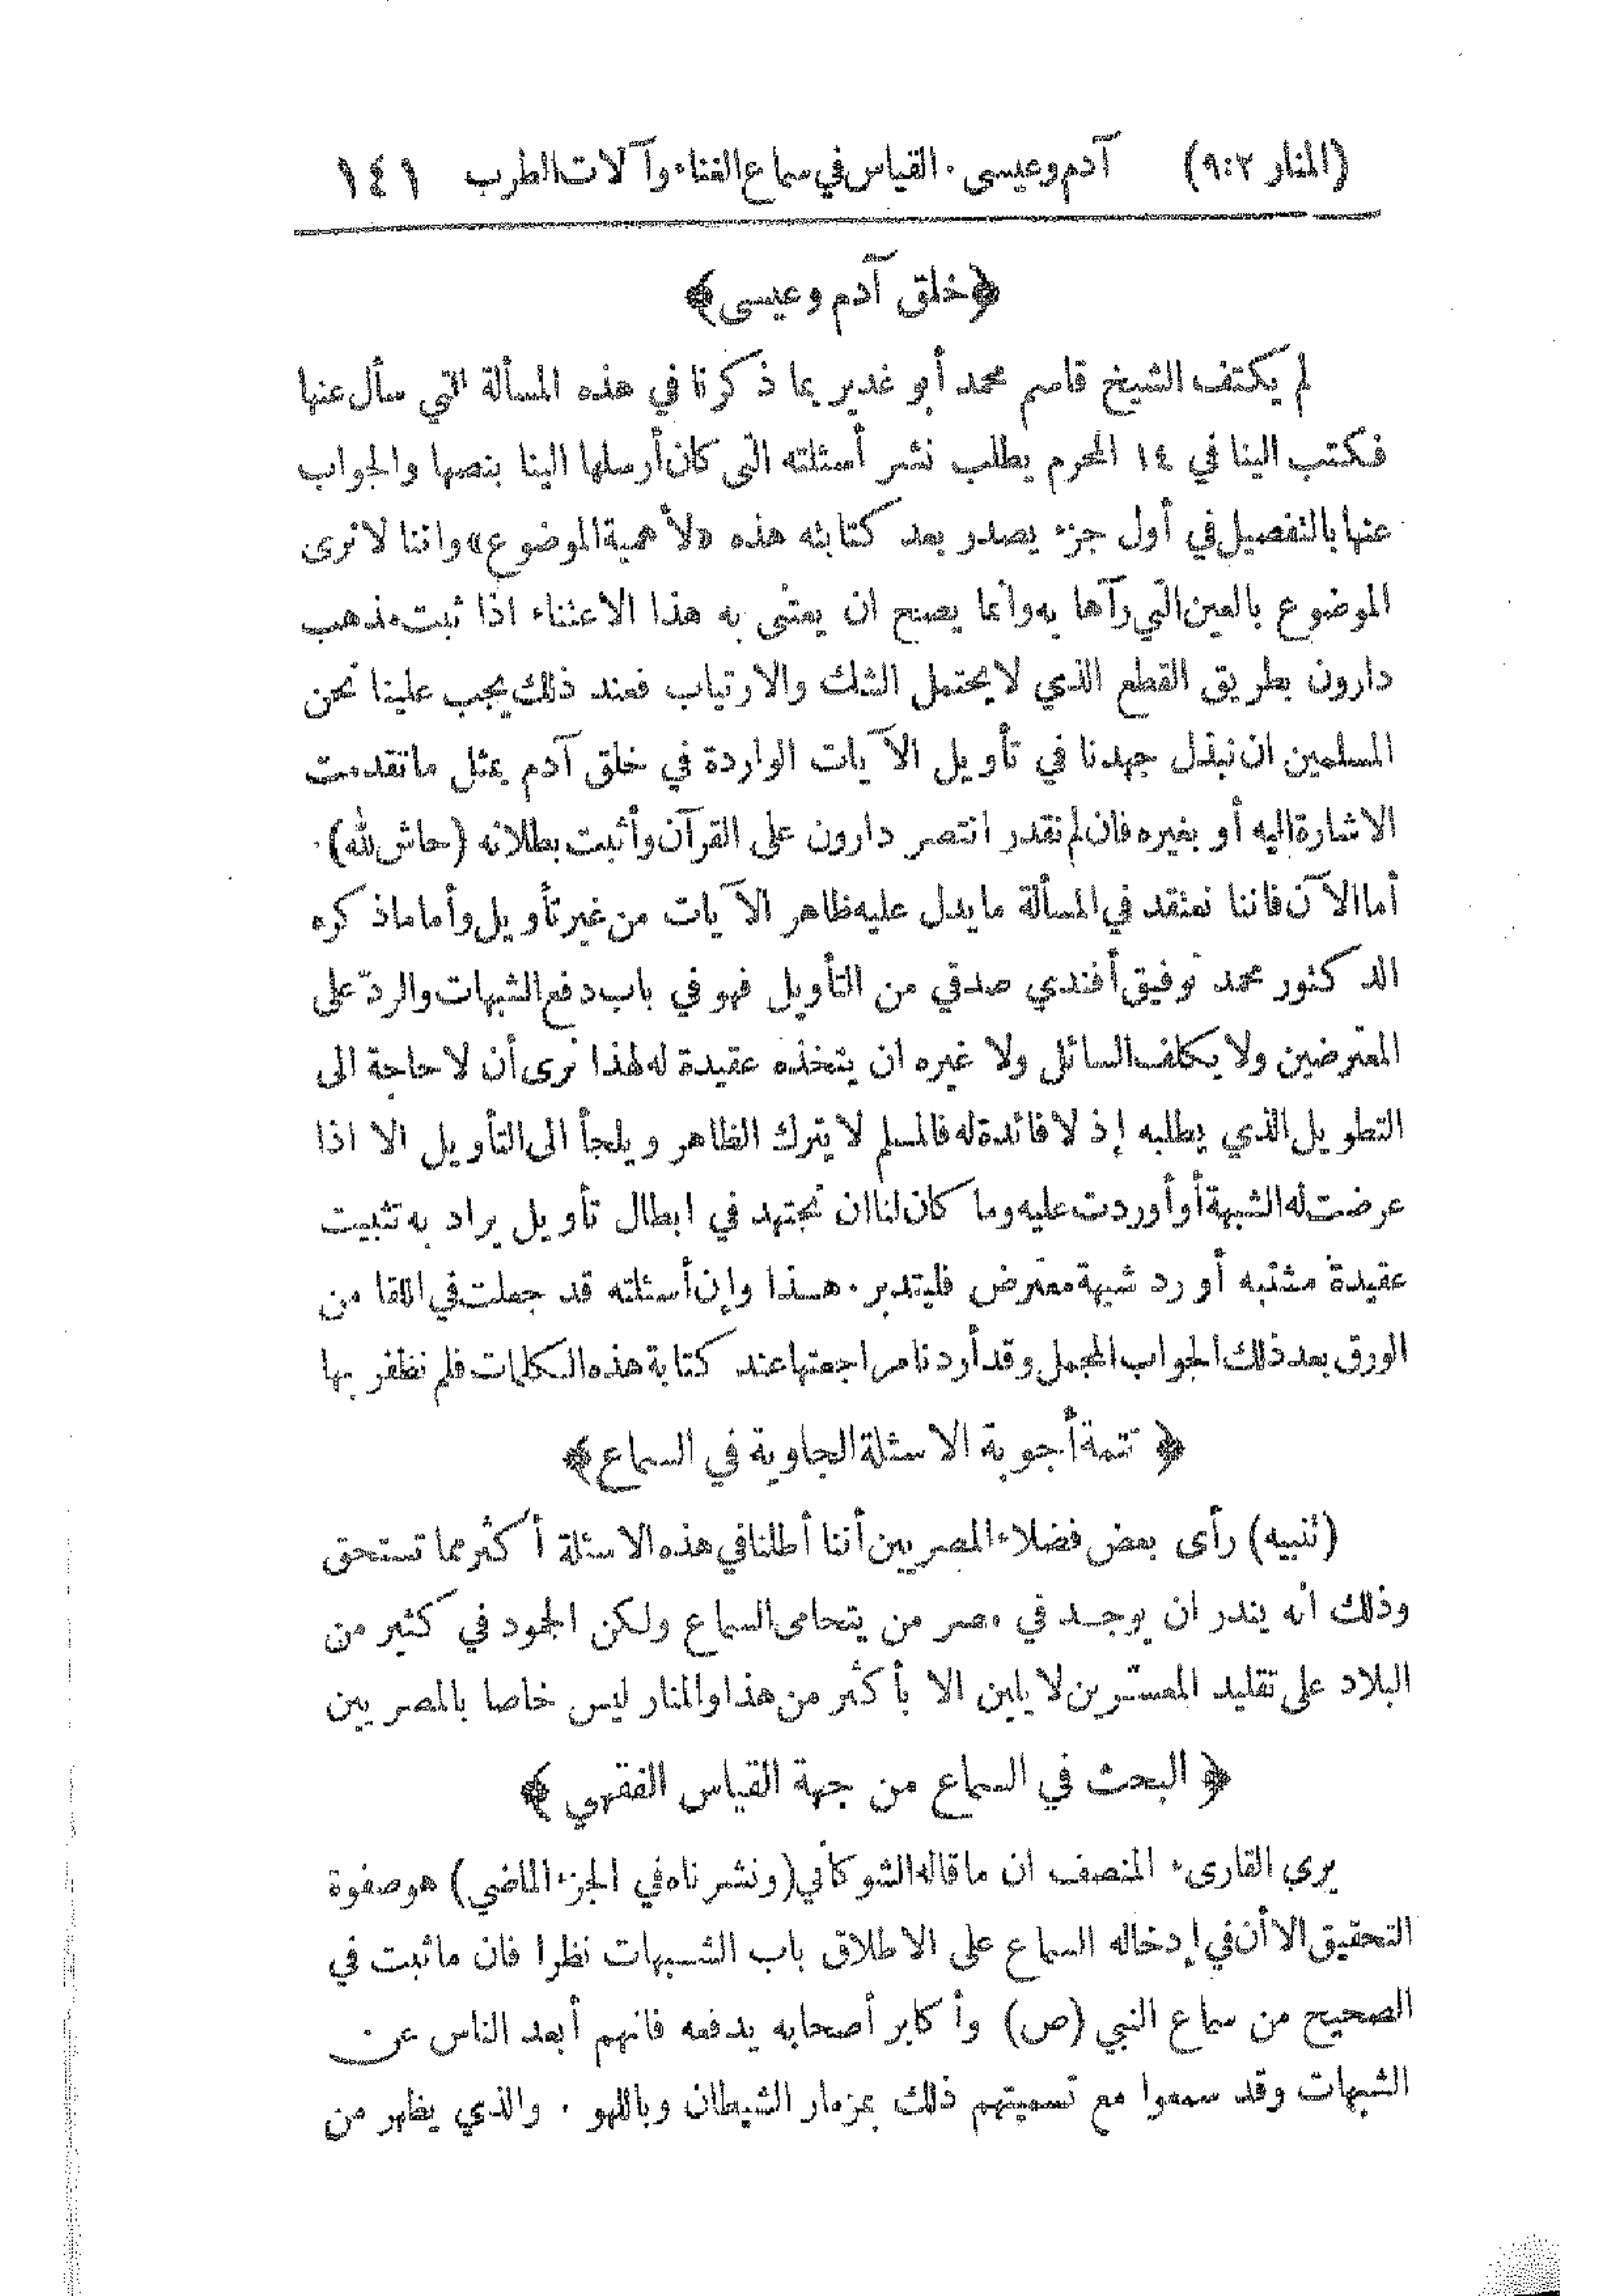 (المنار ٩:٢) آدم وعيسى . القياس في سماع الغناء وآلات الطرب ١٤١
﴿ خلق آدم وعيسى ﴾
لم يكتف الشيخ قاسم محمد أبو غدير بما ذكرنا في هذه المسألة التي سأل عنها
فكتب الينا في ١٤ المحرم يطلب نشر أسئلته التى كان أرسلها الينا بنصها والجواب
عنها بالتفصيل في أول جزء يصدر بعد كتابته هذه «لأهمية الموضوع» واننا لا نرى
الموضوع بالعين التي رآها به وانما يصح ان يعتنى به هذا الاعتناء اذا ثبت مذهب
دارون بطريق القطع الذي لا يحتمل الشك والارتياب فعند ذلك يجب علينا نحن
المسلمين ان نبذل جهدنا في تأويل الآيات الواردة في خلق آدم بمثل ما تقدمت
الاشارة اليه أو بغيره فان لم نقدر انتصر دارون على القرآن وأثبت بطلانه (حاش لله) .
أما الآن فاننا نعتقد في المسألة ما يدل عليه ظاهر الآيات من غير تأويل وأما ما ذكره
الدكتور محمد توفيق أفندي صدقي من التأويل فهو في باب دفع الشبهات والردّ على
المعترضين ولا يكلف السائل ولا غيره ان يتخذه عقيدة له لهذا نرى أن لا حاجة الى
التطويل الذي يطلبه إذ لا فائدة له فالمسلم لا يترك الظاهر ويلجأ الى التأويل الا اذا
عرضت له الشبهة أو أوردت عليه وما كان لنا ان نجتهد في ابطال تأويل يراد به تثبيت
عقيدة مشتبه أو رد شبهة معترض فليتدبر . هذا وإن أسئلته قد جعلت في اللقا من
الورق بعد ذلك الجواب المجمل وقد أردنا مراجعتها عند كتابة هذه الكلمات فلم نظفر بها
﴿ تتمة أجوبة الاسئلة الجاوية في السماع ﴾
(تنبيه) رأى بعض فضلاء المصريين أننا أطلنا في هذه الاسئلة أكثر مما تستحق
وذلك أنه يندر ان يوجد في مصر من يتحامى السماع ولكن الجمود في كثير من
البلاد على تقليد المعسّرين لا يلين الا بأكثر من هذا والمنار ليس خاصا بالمصريين
﴿ البحث في السماع من جهة القياس الفقهي ﴾
يرى القارىء المنصف ان ما قاله الشوكاني (ونشرناه في الجزء الماضي) هو صفوة
التحقيق الا أن في إدخاله السماع على الاطلاق باب الشبهات نظرا فان ما ثبت في
الصحيح من سماع النبي (ص) وأكابر أصحابه يدفعه فانهم أبعد الناس عن
الشبهات وقد سمعوا مع تسميتهم ذلك بمزمار الشيطان وباللهو . والذي يظهر من